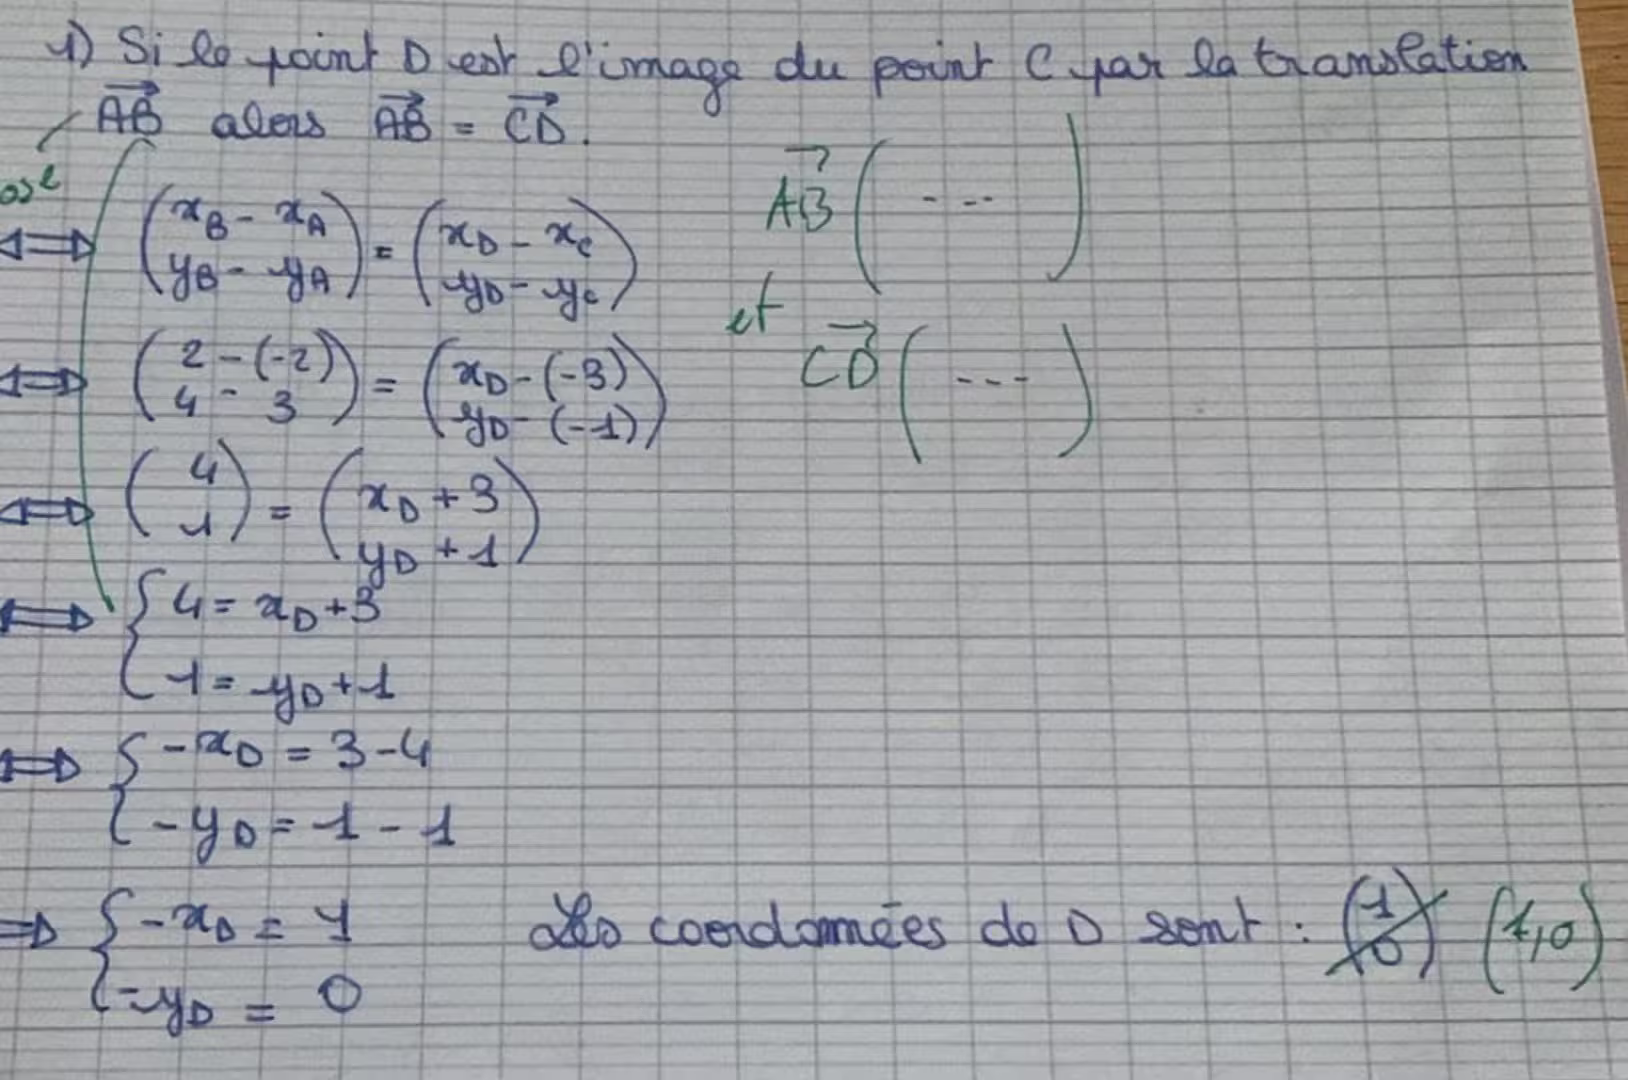 1) Si le point D est l'image du point C par la translation
AB alors AB = CD.
(x_B - x_A) = (x_D - x_C)
(y_B - y_A) (y_D - y_C)
AB ( --- )
et
CD ( --- )
⇔ (2 - (-2)) = (x_D - (-3))
(4 - 3) (y_D - (-1))
⇔ (4) = (x_D + 3)
(1) (y_D + 1)
⇔ { 4 = x_D + 3
1 = y_D + 1
⇔ { -x_D = 3 - 4
-y_D = 1 - 1
⇒ { -x_D = 1
-y_D = 0
Les coordonnées de D sont : (1 0) (1,0)